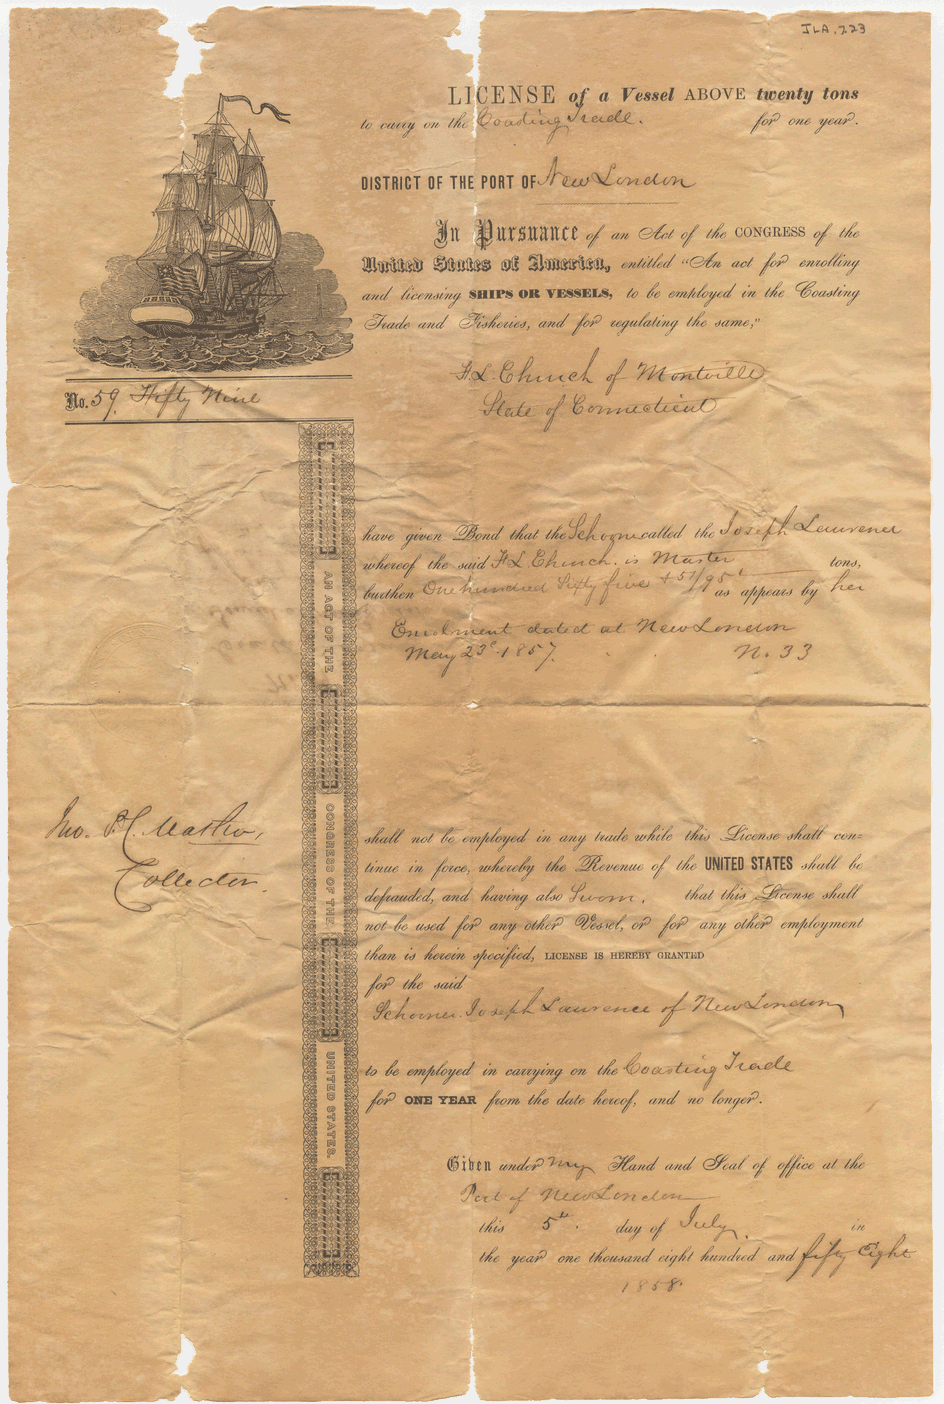 JLA.223
LICENSE of a Vessel ABOVE twenty tons
to carry on the Coasting Trade. for one year.
DISTRICT OF THE PORT OF New London
In Pursuance of an Act of the CONGRESS of the
United States of America, entitled "An act for enrolling
and licensing SHIPS OR VESSELS, to be employed in the Coasting
Trade and Fisheries, and for regulating the same,"
No. 59. Fifty Nine
L. Church of Montville
State of Connecticut
have given Bond that the Schooner called the Joseph Lawrence
whereof the said L Church. is Master tons,
burthen One hundred Sixty five & 51/95 as appears by her
Enrolment dated at New London
May 23d. 1857. No. 33
AN ACT OF THE CONGRESS OF THE UNITED STATES.
Jno. P. C. Mather,
Collector.
shall not be employed in any trade while this License shall con=
tinue in force, whereby the Revenue of the UNITED STATES shall be
defrauded, and having also Sworn. that this License shall
not be used for any other Vessel, or for any other employment
than is herein specified, LICENSE IS HEREBY GRANTED
for the said
Schooner Joseph Lawrence of New London
to be employed in carrying on the Coasting Trade
for ONE YEAR from the date hereof, and no longer.
Given under my Hand and Seal of office at the
Port of New London
this 5th. day of July. in
the year one thousand eight hundred and fifty Eight
1858.